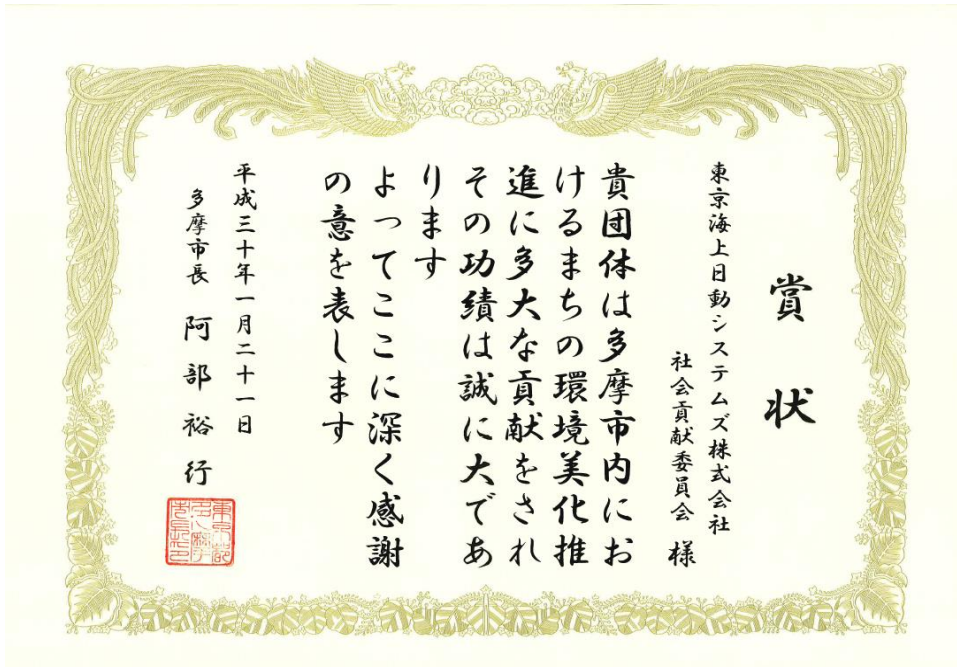 賞状
東京海上日動システムズ株式会社
社会貢献委員会 様
貴団体は多摩市内にお
けるまちの環境美化推
進に多大な貢献をされ
その功績は誠に大であ
ります
よってここに深く感謝
の意を表します
平成三十年一月二十一日
多摩市長 阿部裕行